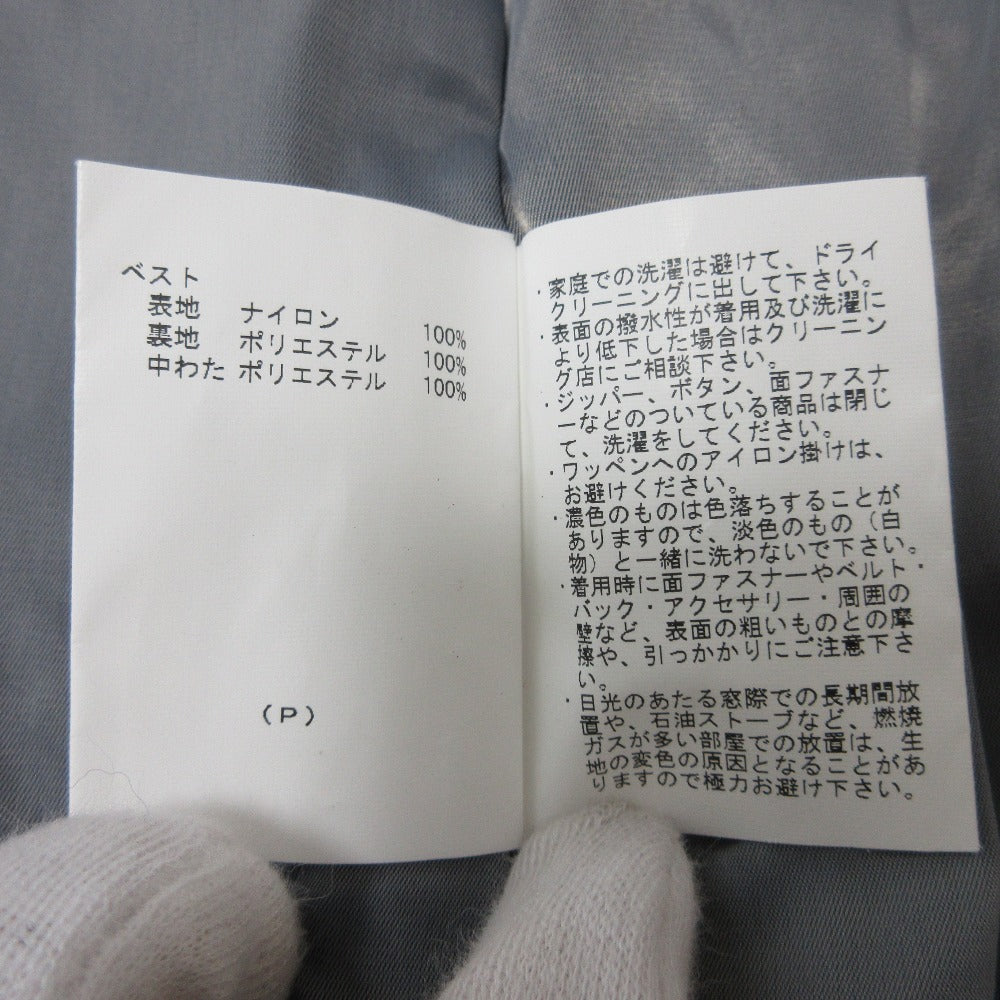 ベスト
表地 ナイロン 100%
裏地 ポリエステル 100%
中わた ポリエステル 100%
(P)
・家庭での洗濯は避けて、ドライ
クリーニングに出して下さい。
・表面の撥水性が着用及び洗濯に
より低下した場合はクリーニン
グ店にご相談下さい。
・ジッパー、ボタン、面ファスナ
ーなどのついている商品は閉じ
て、洗濯をしてください。
・ワッペンへのアイロン掛けは、
お避けください。
・濃色のものは色落ちすることが
ありますので、淡色のもの（白
物）と一緒に洗わないで下さい。
・着用時に面ファスナーやベルト・
バック・アクセサリー・周囲の
壁など、表面の粗いものとの摩
擦や、引っかかりにご注意下さ
い。
・日光のあたる窓際での長期間放
置や、石油ストーブなど、燃焼
ガスが多い部屋での放置は、生
地の変色の原因となることがあ
りますので極力お避け下さい。